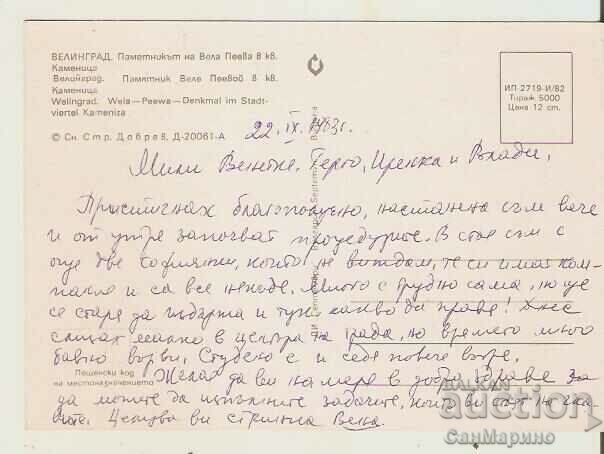 ВЕЛИНГРАД. Паметникът на Вела Пеева в кв.
Каменица
Велинград. Памятник Веле Пеевой в кв.
Каменица
Welingrad. Wela—Peewa—Denkmal im Stadt-
viertel Kameniza
© Сн. Стр. Добрев, Д-20061-А
ИП 2719-И/82
Тираж 5000
Цена 12 ст.
22.IX.1983г.
Мили Венетке, Герго, Иренка и Влади,
Пристигнах благополучно, настанена съм вече
и от утре започват процедурите. В стая съм с
още две софиянки, които не виждам, те си имат ком-
пания и са все някъде. Много е трудно сама, но ще
се старая да издържа и тук, какво да правя! Днес
слизах малко в центъра на града, но времето много
бавно върви. Студено е и седя повече вътре.
Пощенски код
на местоназначението
Желая да ви намеря в добро здраве за
да можете да изпълните задачите, които ви стоят на гла
вите. Целува ви стрина Вена.
БАЛКАН
auction
СанМарино